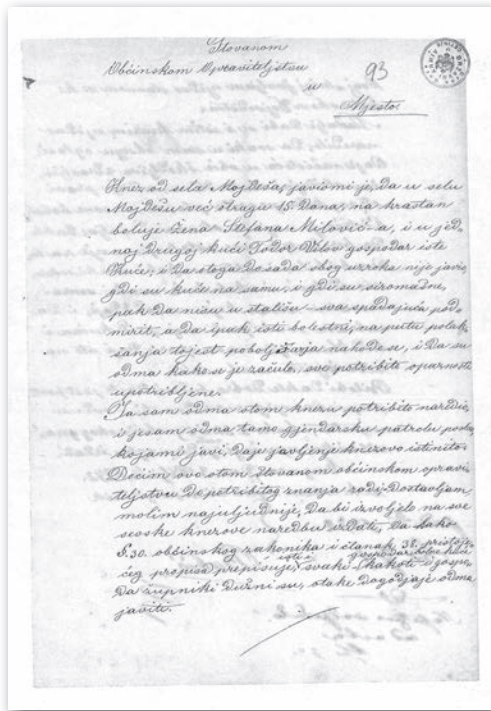 Štovanom
Občinskom Upraviteljstvu
93
u
Mjesto:
Knez od sela Mojdeša, javiomi je, da u selu
Mojdešu već stragu 15. dana, na krastan
boluje žena Stefana Milović-a, i u jed-
noj drugoj kući Todor Vilov gospodar iste
kuće, i da stoga dosada sbog uzroka nije javio
gdi su kuće na samu, i gdi su siromašne,
pak da nisu u stališu sva spadajuća pod-
mirit, a da ipak isti bolestni, na putu polak-
šanja tojest poboljšavja nahode se, i da su
odma kako se je začulo, sve potribite opaznosti
upotribljene.
Ja sam odma otom knezu potribito naredio,
i jesam odma tamo žjendarsku patrolu poslo
kojami javi, daje javljenje knezovo istinito.
Dočim ovo otom štovanom občinskom upravi-
teljstvu do potribitog znanja radi dostavljam,
molim najuljudnije, da bi izvoljelo na sve
seoske knezove naredbu izdati, da kako
§.30. občinskog zakonika i članak 38. pristoje-
ćeg propisa prepisuje, svaki gospodar kuće
kakoti i
da župniki dužni su, otake dogodjaje odma
javiti.